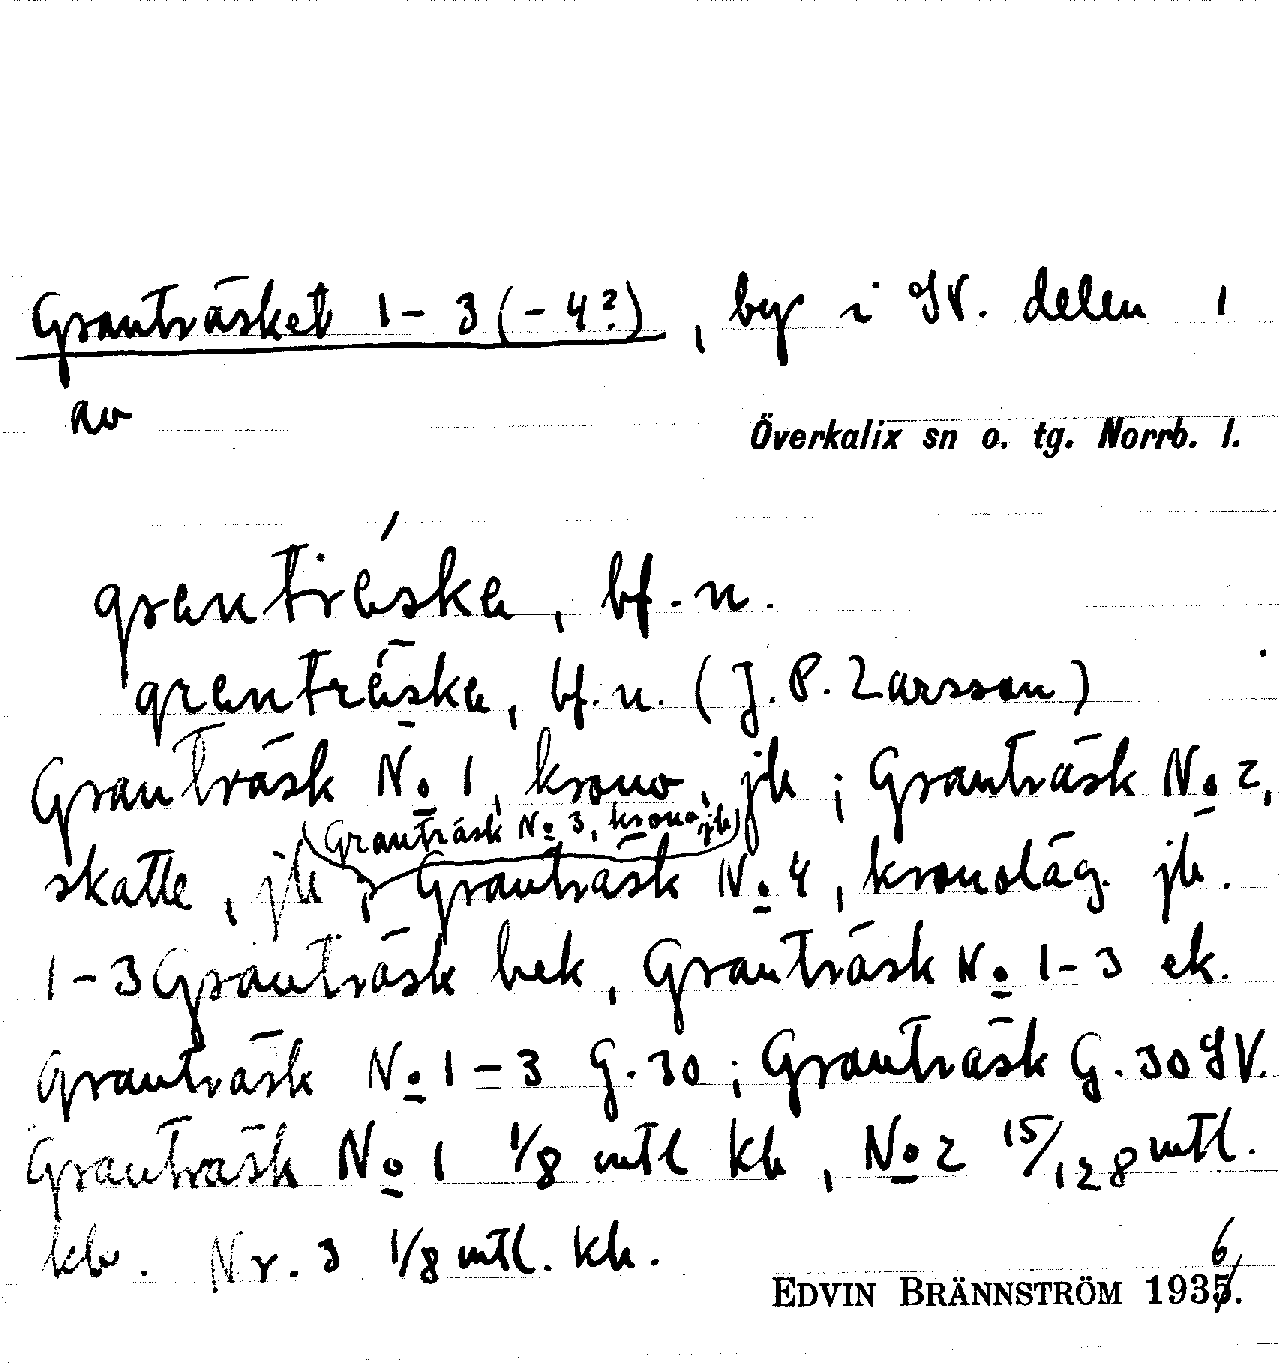 Granträsket 1-3 (-4?), by i SV. delen i
av
Överkalix sn o. tg. Norrb. l.
granträska, bf. n.
granträska, bf. n. (J. P. Larsson)
Granträsk No 1, krono, jb; Granträsk No 2,
Granträsk No 3, krono, jb
skatte, jb; Granträsk No 4, kronoläg. jb.
1-3 Granträsk hek, Granträsk No 1-3 ek.
Granträsk No 1-3 G. 30; Granträsk G. 30 SV.
Granträsk No 1 1/8 mtl kb, No 2 15/128 mtl.
kb. Nr. 3 1/8 mtl. kb.
EDVIN BRÄNNSTRÖM 1936.